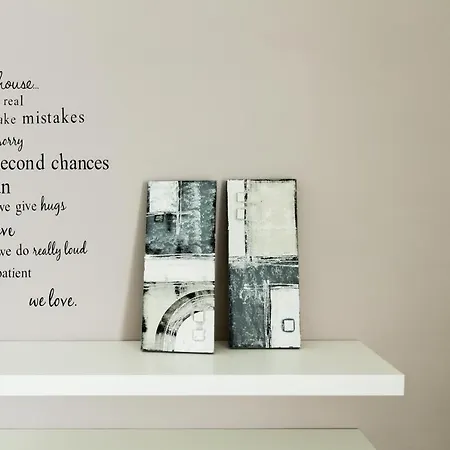 house...
real
mistakes
sorry
second chances
we give hugs
we do really loud
patient
we love.